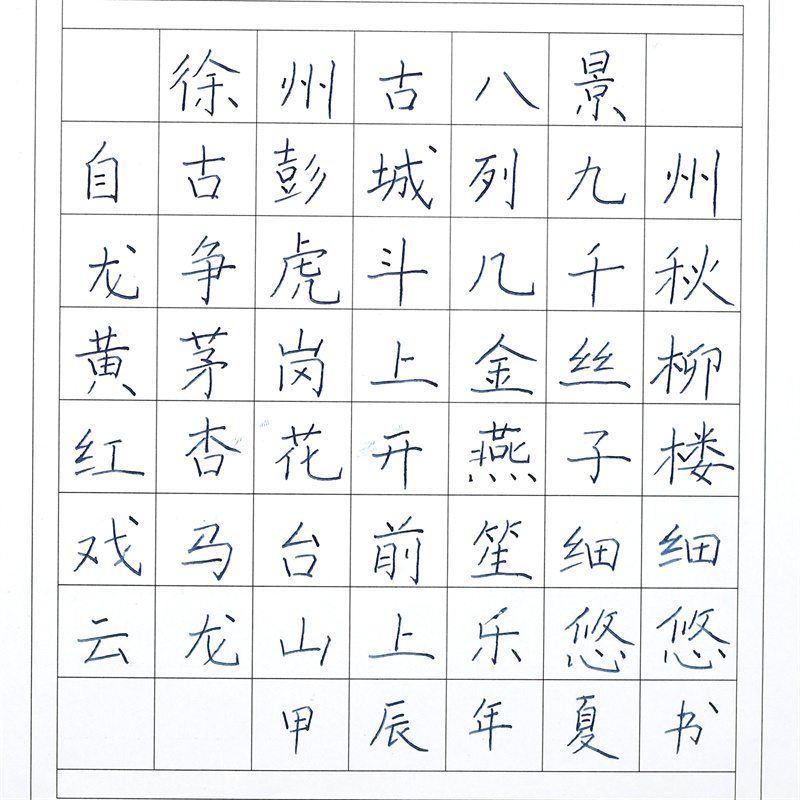 徐州古八景
自古彭城列九州
龙争虎斗几千秋
黄茅岗上金丝柳
红杏花开燕子楼
戏马台前笙细细
云龙山上乐悠悠
甲辰年夏书